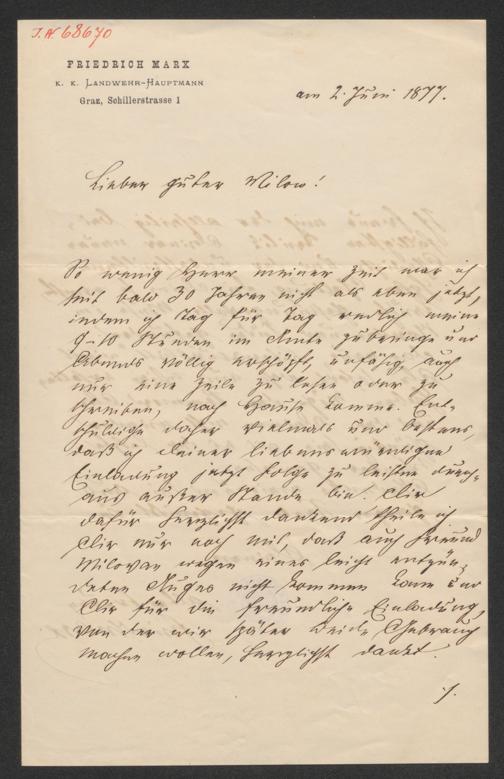 J.N. 68670
FRIEDRICH MARX
K. K. LANDWEHR-HAUPTMANN
Graz, Schillerstrasse 1
am 2. Juni 1877.
Lieber guter Milow!
So wenig Herr meiner Zeit war ich
seit bald 30 Jahren nicht als eben jetzt,
indem ich Tag für Tag redlich meine
9-10 Stunden im Amte zubringe und
Abends völlig erschöpft, unfähig, auch
nur eine Zeile zu lesen oder zu
schreiben, nach Hause komme. Ent-
schuldige daher vielmals und bestens,
daß ich deiner liebenswürdigen
Einladung jetzt Folge zu leisten durch-
aus außer Stande bin. Dir
dafür herzlichst dankend theile ich
Dir nur noch mit, daß auch Freund
Milovan wegen eines leicht entzün-
deten Auges nicht kommen kann und
Dir für die freundliche Einladung,
von der wir später beide Gebrauch
machen wollen, herzlichst dankt.
./.